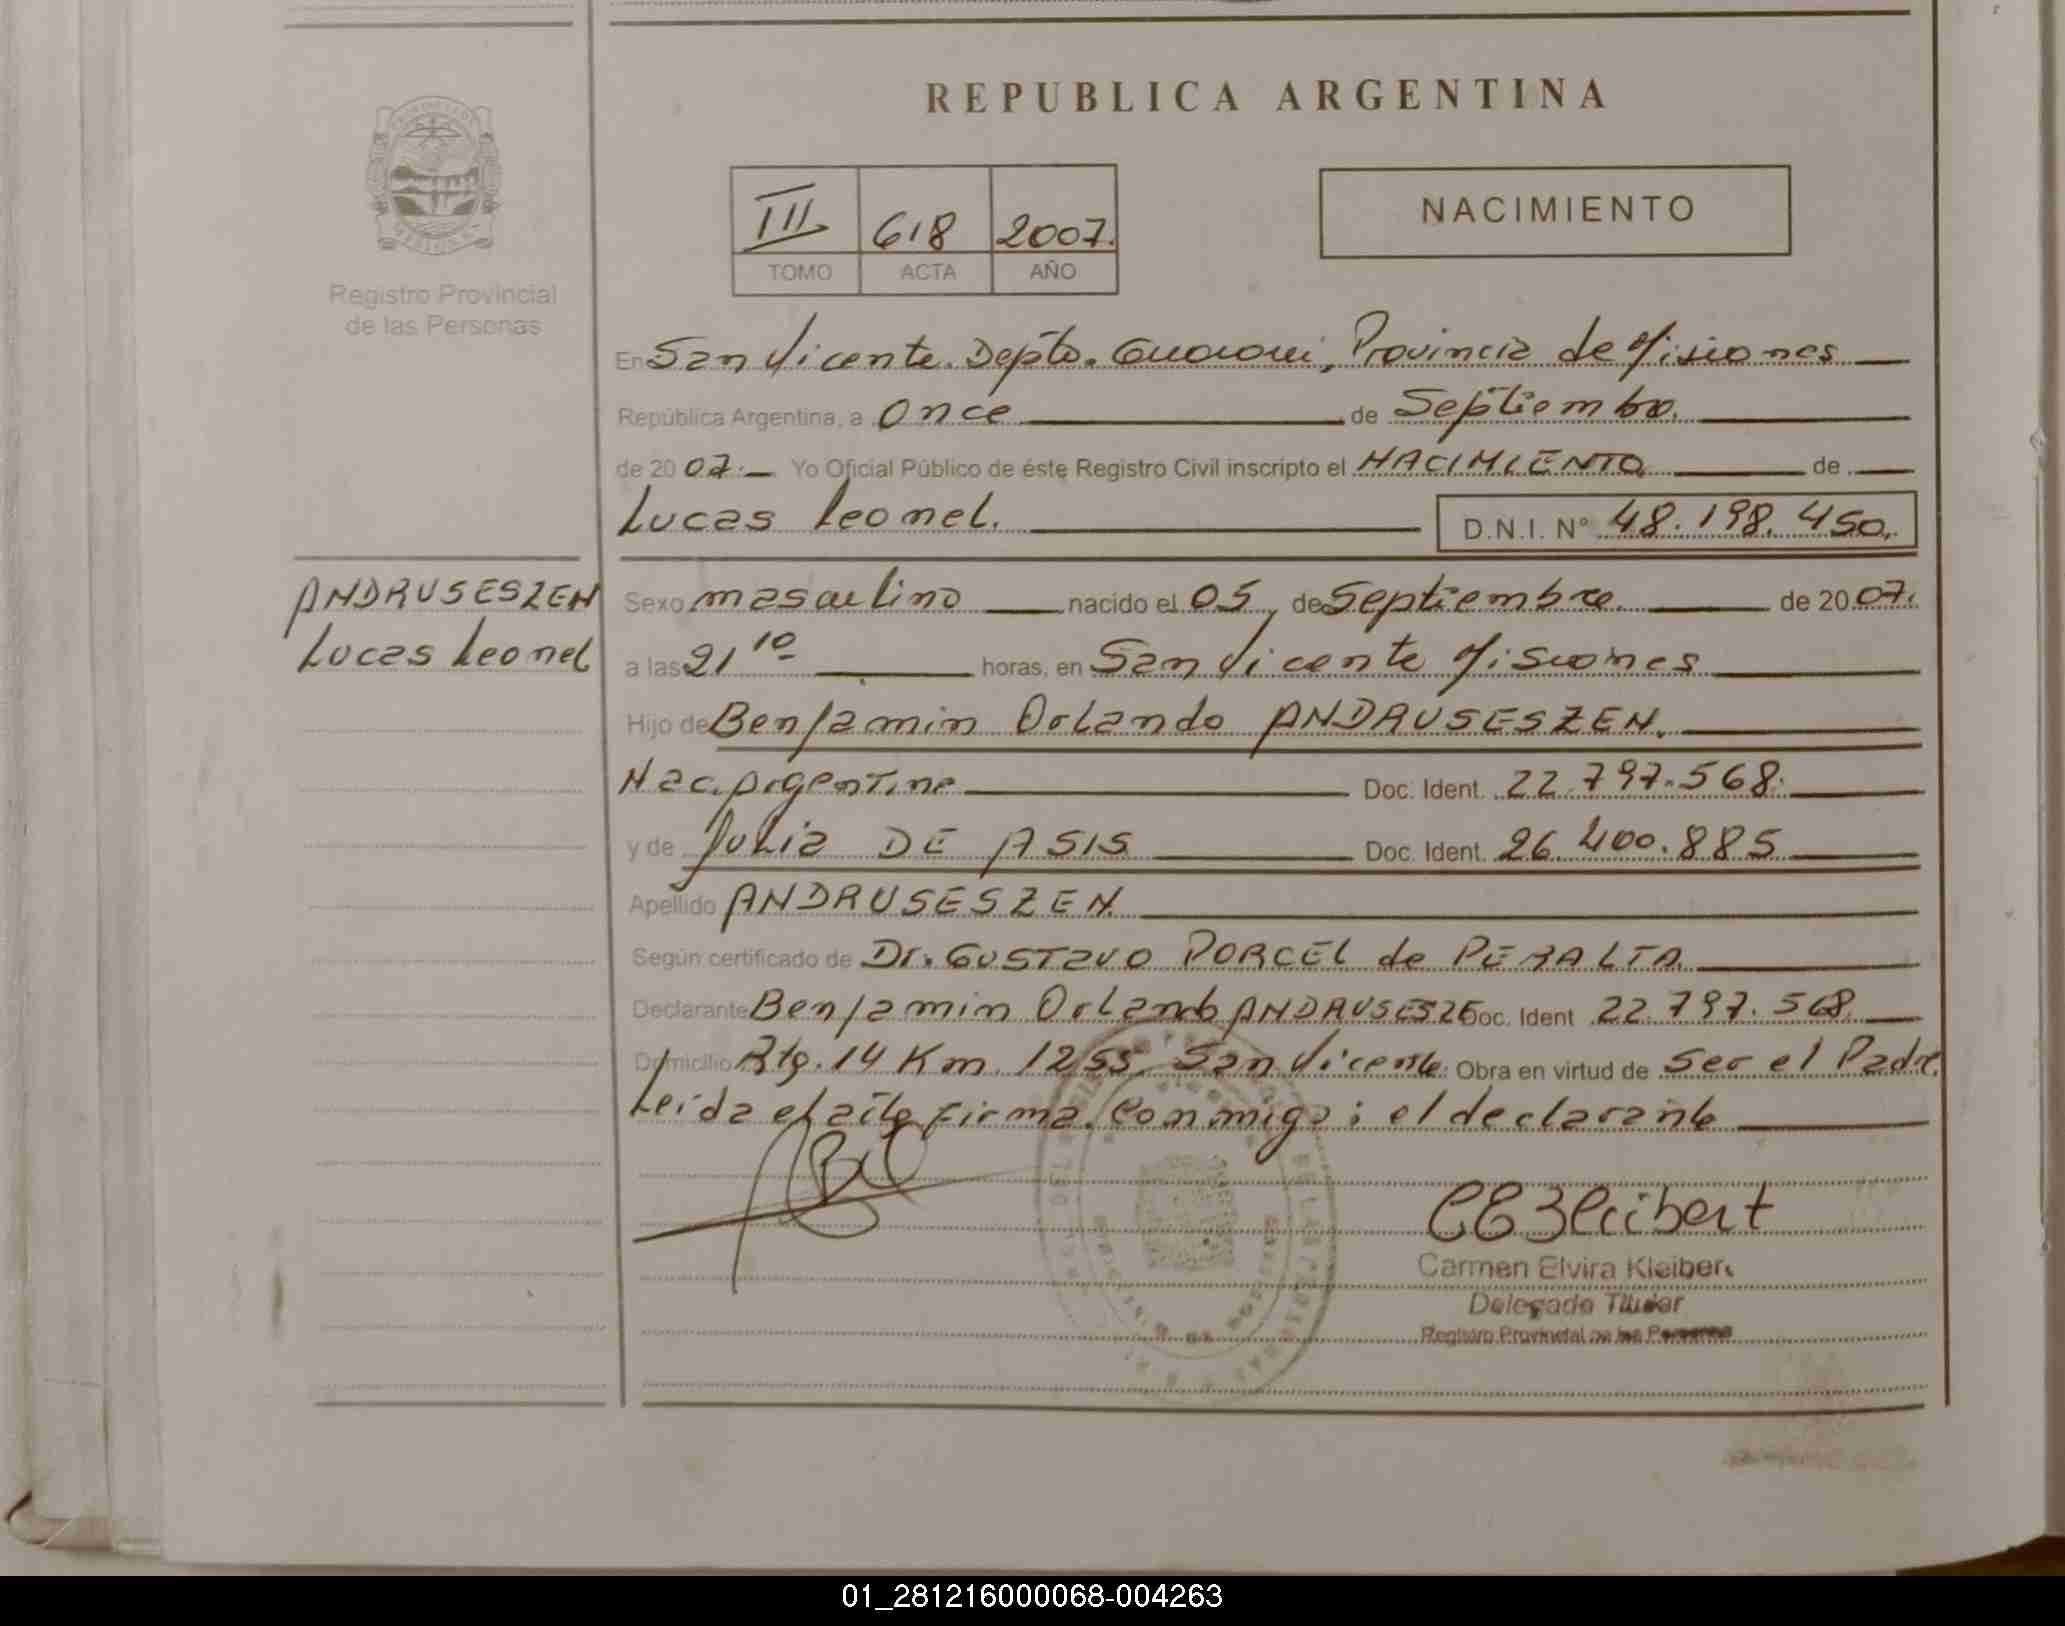 REPUBLICA ARGENTINA
III 618 2007.
TOMO ACTA AÑO
NACIMIENTO
Registro Provincial
de las Personas
En San Vicente. Depto. Guarani, Provincia de Misiones
República Argentina, a Once de Septiembre.
de 20 07. Yo Oficial Público de éste Registro Civil inscripto el NACIMIENTO de
Lucas Leonel. D.N.I. N° 48.198.450.
ANDRUSESZEN
Lucas Leonel
Sexo masculino nacido el 05, de Septiembre. de 20 07.
a las 21 10 horas, en San Vicente Misiones
Hijo de Benjamin Orlando ANDRUSESZEN.
Nac. Argentina Doc. Ident. 22.797.568.
y de Julia DE ASIS Doc. Ident. 26.400.885
Apellido ANDRUSESZEN
Según certificado de Dr. GUSTAVO PORCEL de PERALTA
Declarante Benjamin Orlando ANDRUSESZE Doc. Ident 22.797.568.
Domicilio Rta. 14 Km. 1255. San Vicente. Obra en virtud de Ser el Padre.
Leida el acta firma. Conmigo: el declarante
CEKleibert
Carmen Elvira Kleibert
Delegado Titular
Registro Provincial de las Personas
01_281216000068-004263